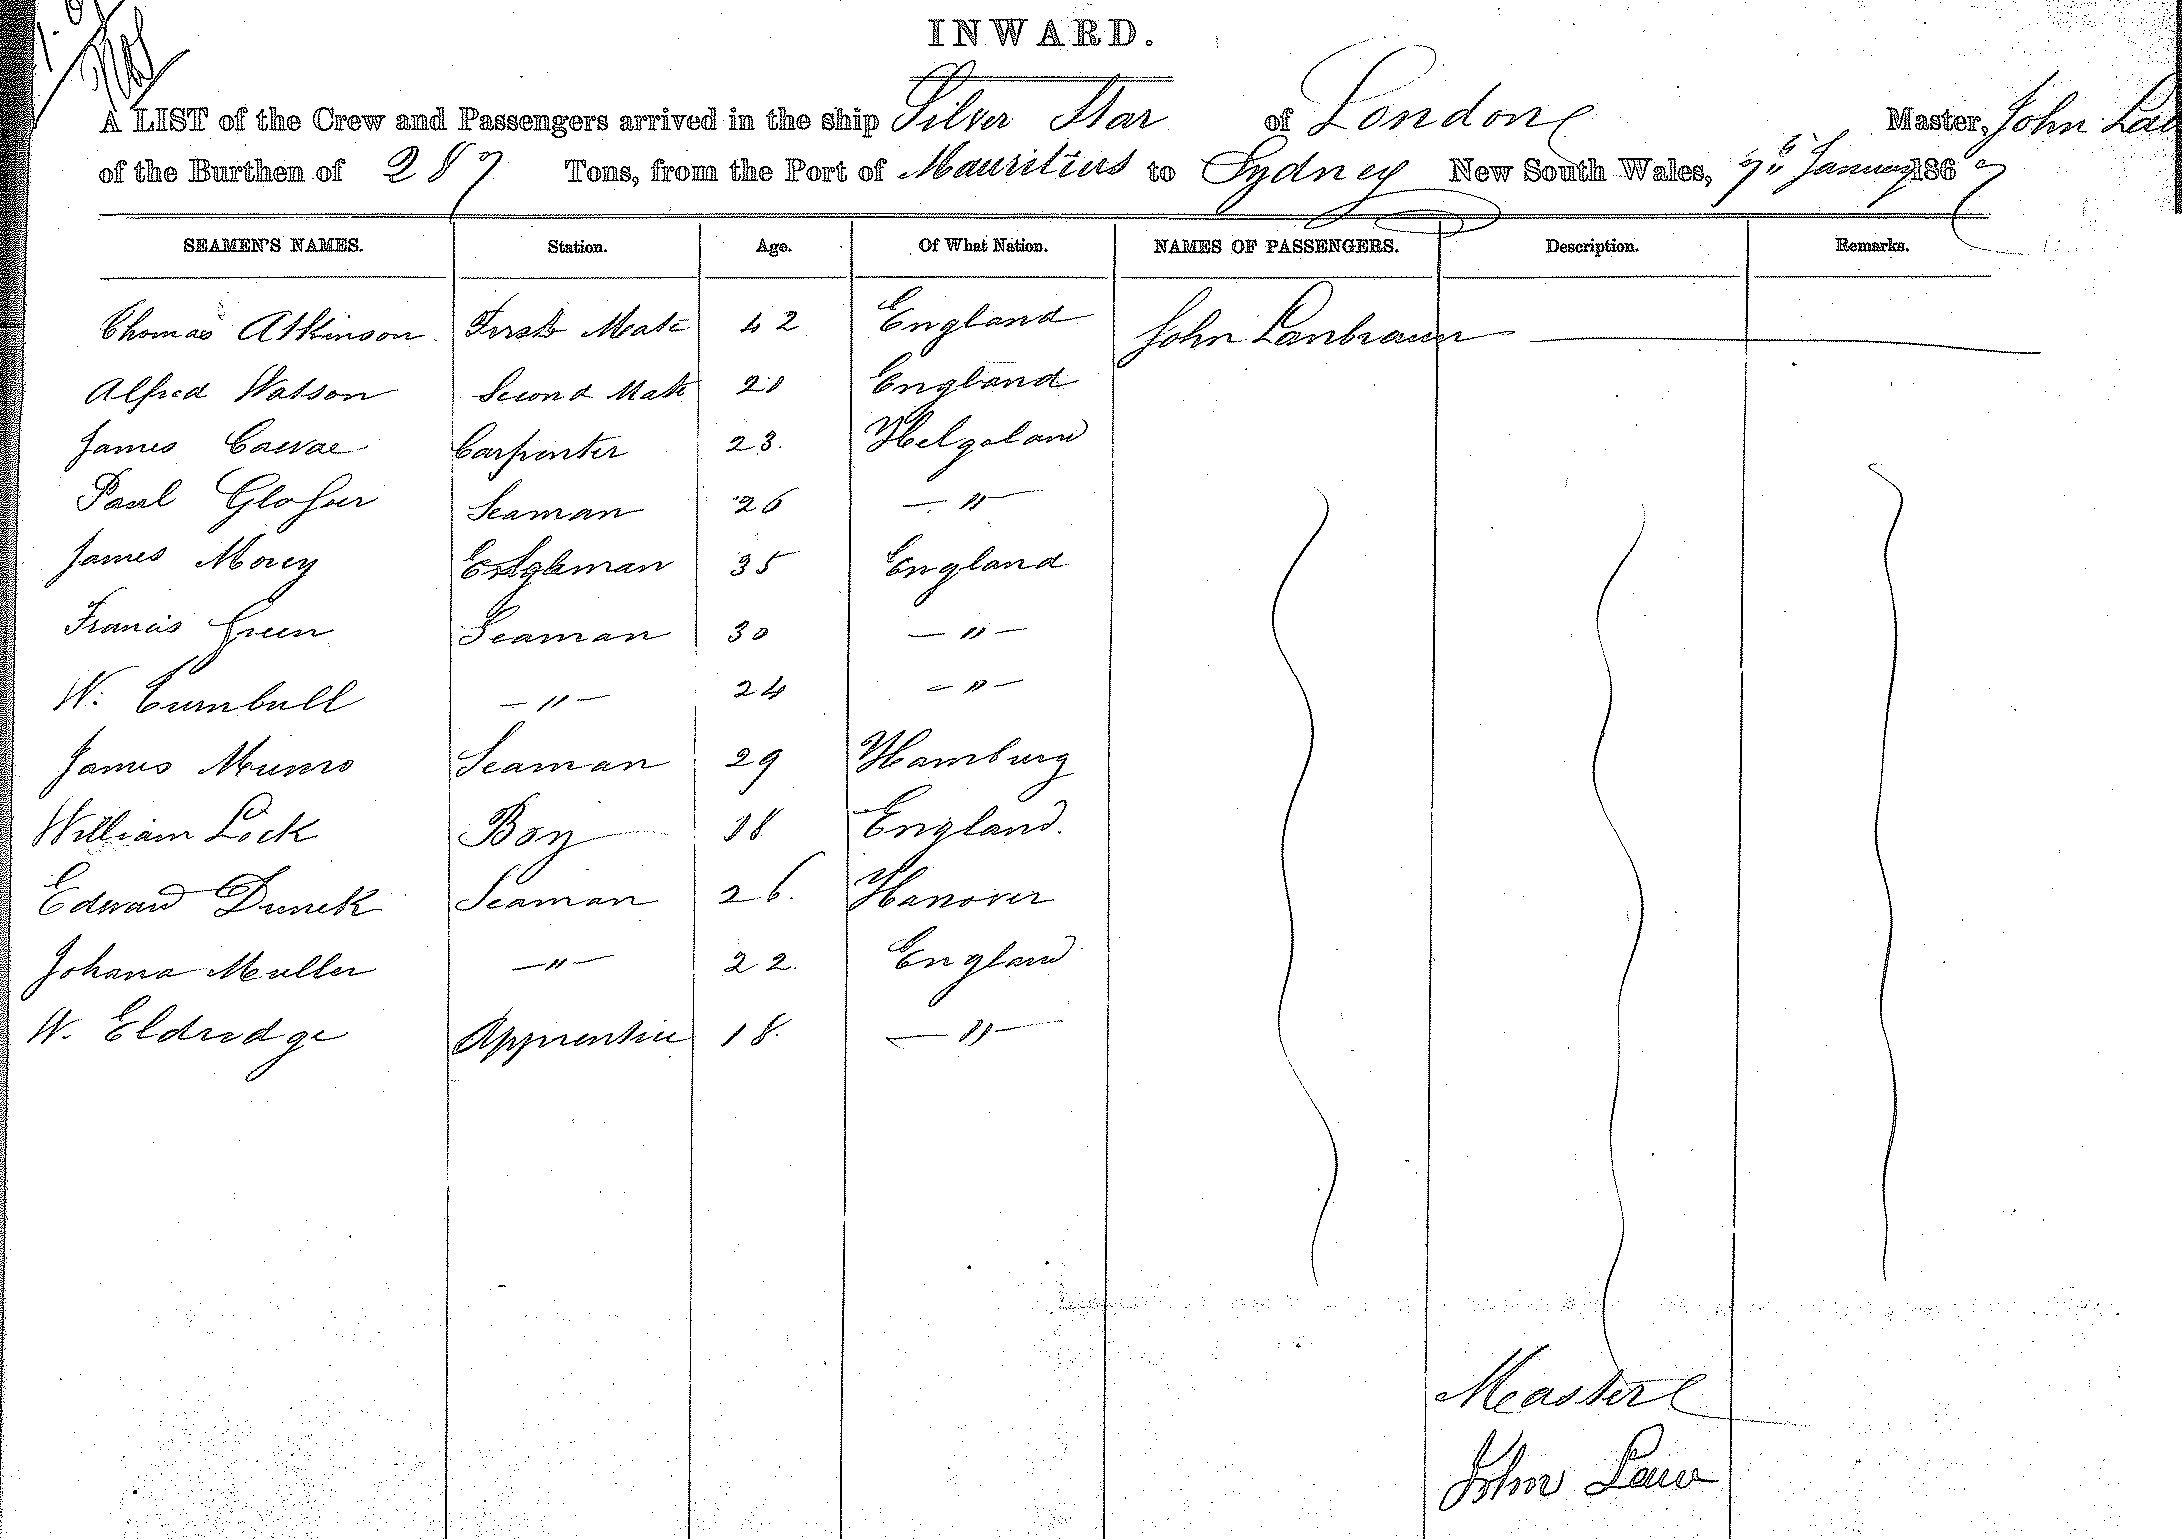 INWARD.
A LIST of the Crew and Passengers arrived in the ship Silver Star of London Master, John
of the Burthen of 287 Tons, from the Port of Mauritius to Sydney New South Wales, 7th January 1867
SEAMEN'S NAMES. Station. Age. Of What Nation. NAMES OF PASSENGERS. Description. Remarks.
Thomas Atkinson First Mate 42 England John
Alfred Watson Second Mate 21 England
James Carpenter 23. Helgoland
Paul Seaman 26 — " —
James Morey 35 England
Francis Green Seaman 30 — " —
W. Turnbull — " — 24 — " —
James Munro Seaman 29 Hamburg
William Lock Boy 18 England.
Edward Seaman 26. Hanover
Johana Muller — " — 22. England
W. Eldredge Apprentice 18. — " —
Master
John Law